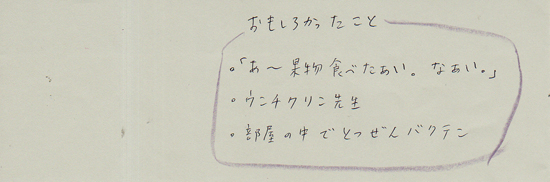 おもしろかったこと
。「あ〜果物食べたあい。なあい。」
・ウンチクリン先生
・部屋の中でとつぜんバクテン